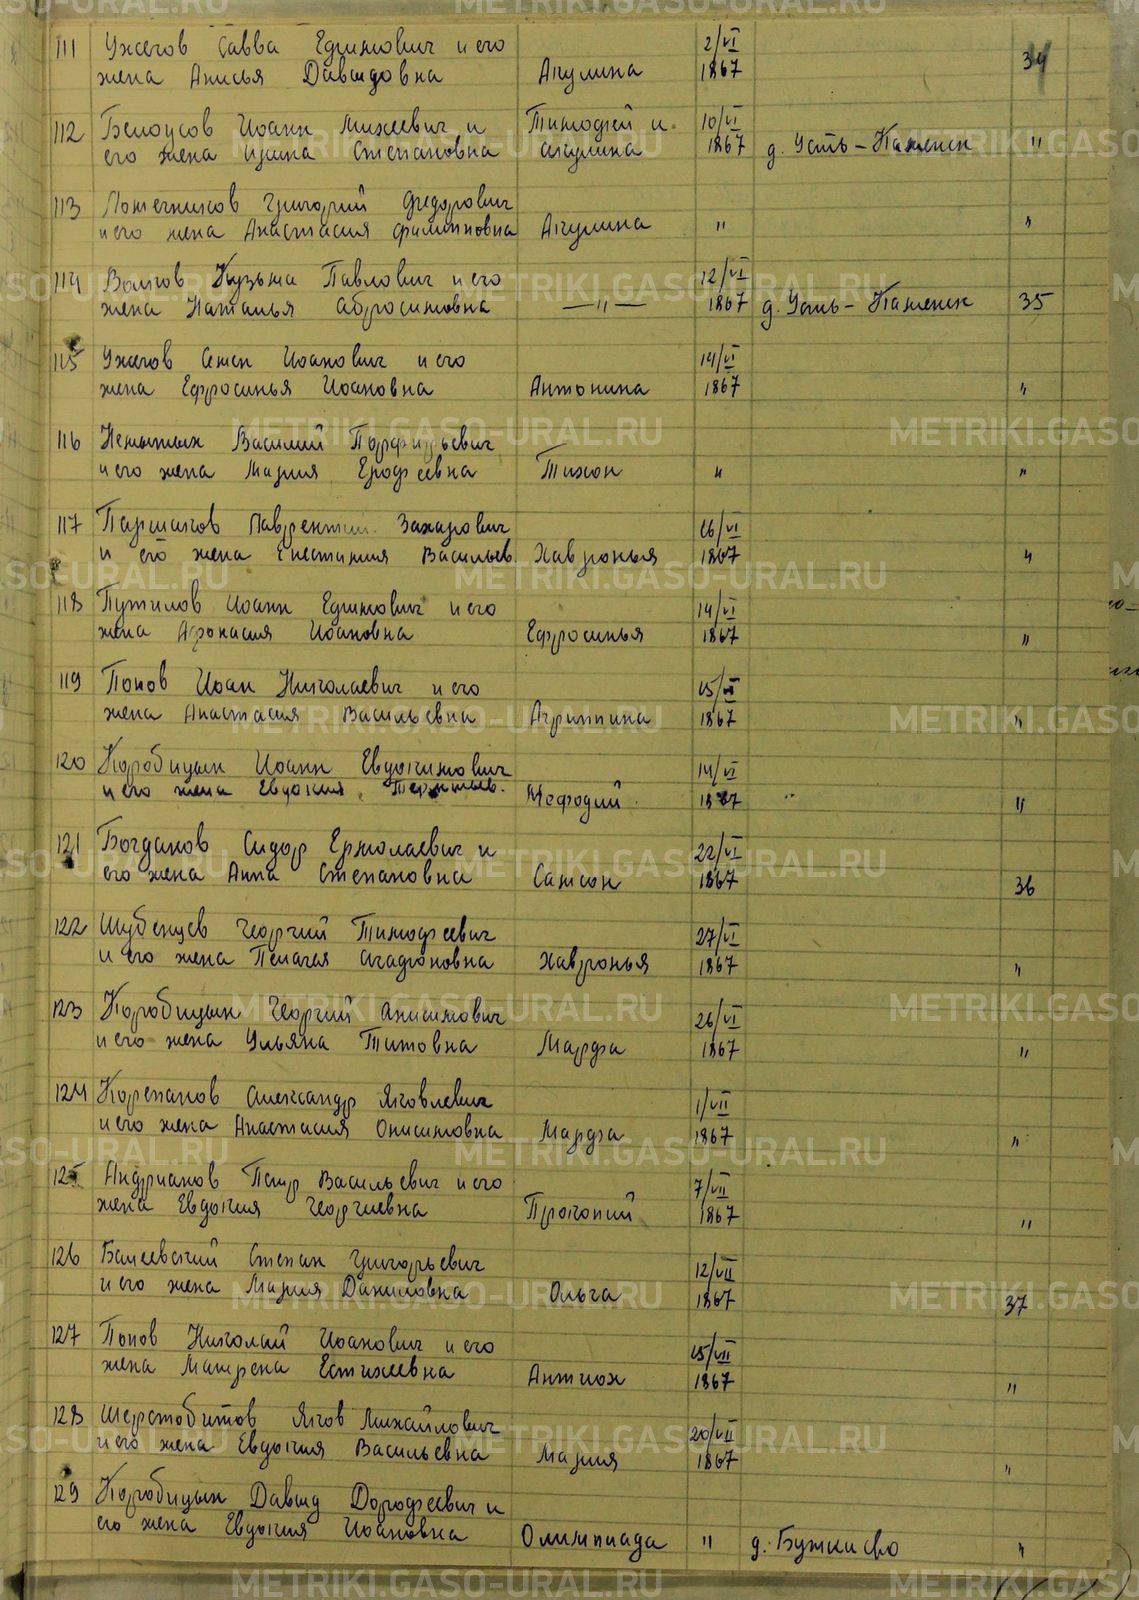 111 Ужегов Савва Ефимович и его
жена Анисья Давыдовна Акулина 2/VI 1867 34
112 Белоусов Иоанн Михеевич и Тимофей и 10/VI
его жена Ирина Степановна Акулина 1867 д. Усть-Каменск "
113 Григорий Федорович
и его жена Анастасия Филипповна Акулина " "
114 Волков Кузьма Павлович и его 12/VI
жена Наталья Абросимовна —"— 1867 д. Усть-Каменск 35
115 Ужегов Семен Иоанович и его 14/VI
жена Ефросинья Иоановна Антонина 1867 "
116 Василий Порфирьевич
и его жена Мария Ерофеевна Тихон " "
117 Паршаков Лаврентий Захарович 16/VI
и его жена Екестиния Васильев. Хавронья 1867 "
118 Путилов Иоанн Ефимович и его 14/VI
жена Афонасия Иоановна Ефросинья 1867 "
119 Попов Иоан Николаевич и его 15/VI
жена Анастасия Васильевна Агриппина 1867 "
120 Коробицын Иоанн Евдокимович 14/VI
и его жена Евдокия Мефодий 1867 "
121 Богданов Сидор Ермолаевич и 22/VI
его жена Анна Степановна Самсон 1867 36
122 Шубенцев Георгий Тимофеевич 27/VI
и его жена Пелагея Агафоновна Хавронья 1867 "
123 Коробицын Георгий Анисимович 26/VI
и его жена Ульяна Титовна Марфа 1867 "
124 Корепанов Александр Яковлевич 1/VII
и его жена Анастасия Онисимовна Марфа 1867 "
125 Андрианов Петр Васильевич и его 7/VII
жена Евдокия Георгиевна Прокопий 1867 "
126 Степан Григорьевич 12/VII
и его жена Мария Даниловна Ольга 1867 37
127 Попов Николай Иоанович и его 15/VII
жена Матрена Естихеевна Антиох 1867 "
128 Шерстобитов Яков Михайлович 20/VII
и его жена Евдокия Васильевна Мария 1867 "
129 Коробицын Давыд Дорофеевич и
его жена Евдокия Иоановна Олимпиада " д. "
METRIKI.GASO-URAL.RU